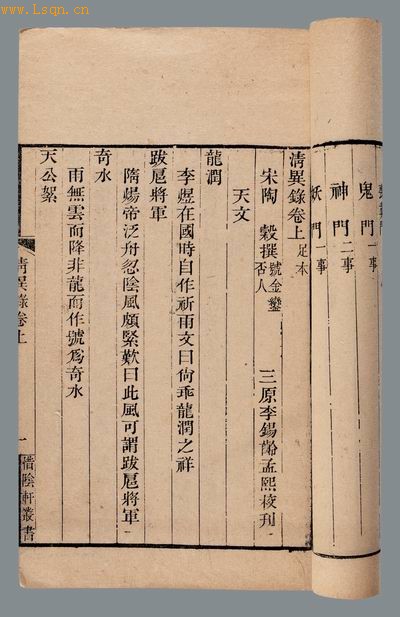 www.Lsqn.cn
鬼門一事
神門二事
妖門一事
清異錄卷上足本
宋陶穀撰號金鑾否人 三原李錫齡孟熙校刊
天文
龍潤
李煜在國時自作祈雨文曰尙乖龍潤之祥
跋扈將軍
隋煬帝泛舟忽陰風頗緊歎曰此風可謂跋扈將軍
奇水
雨無雲而降非龍而作號爲奇水
天公絮
清異錄卷上
一
惜陰軒叢書